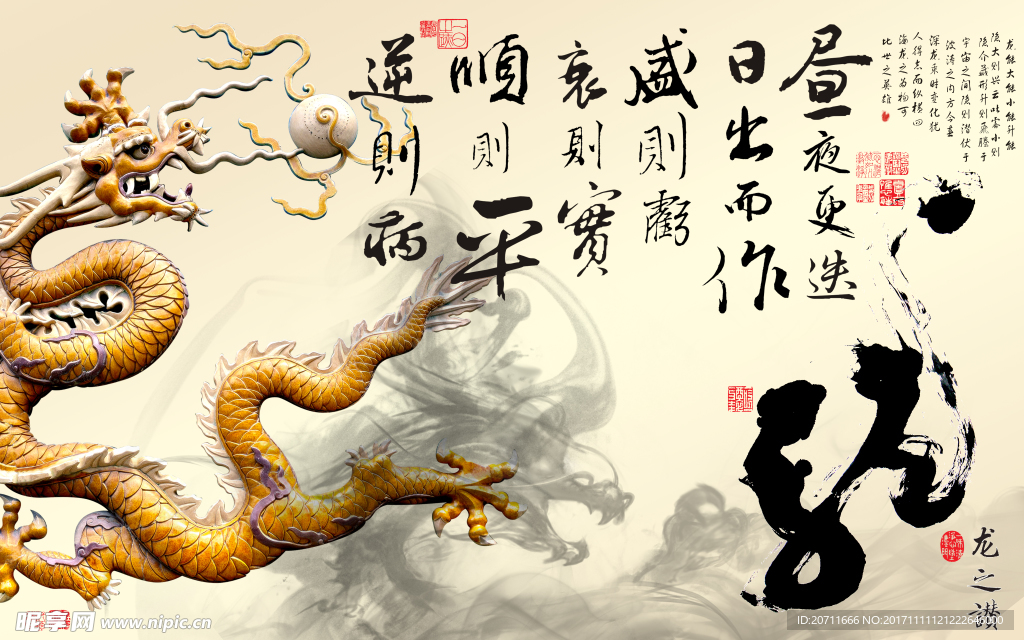 龙能大能小能升能
隐大则兴云吐雾小则
隐介藏形升则飞腾于
宇宙之间隐则潜伏于
波涛之内方今春
深龙乘时变化犹
人得志而纵横四
海龙之为物可
比世之英雄
昼夜更迭
日出而作
盛則虧
衰則實
順則平
逆則病
龙
龙之讃
昵享网 www.nipic.cn
ID:20711666 NO:20171111121222646000